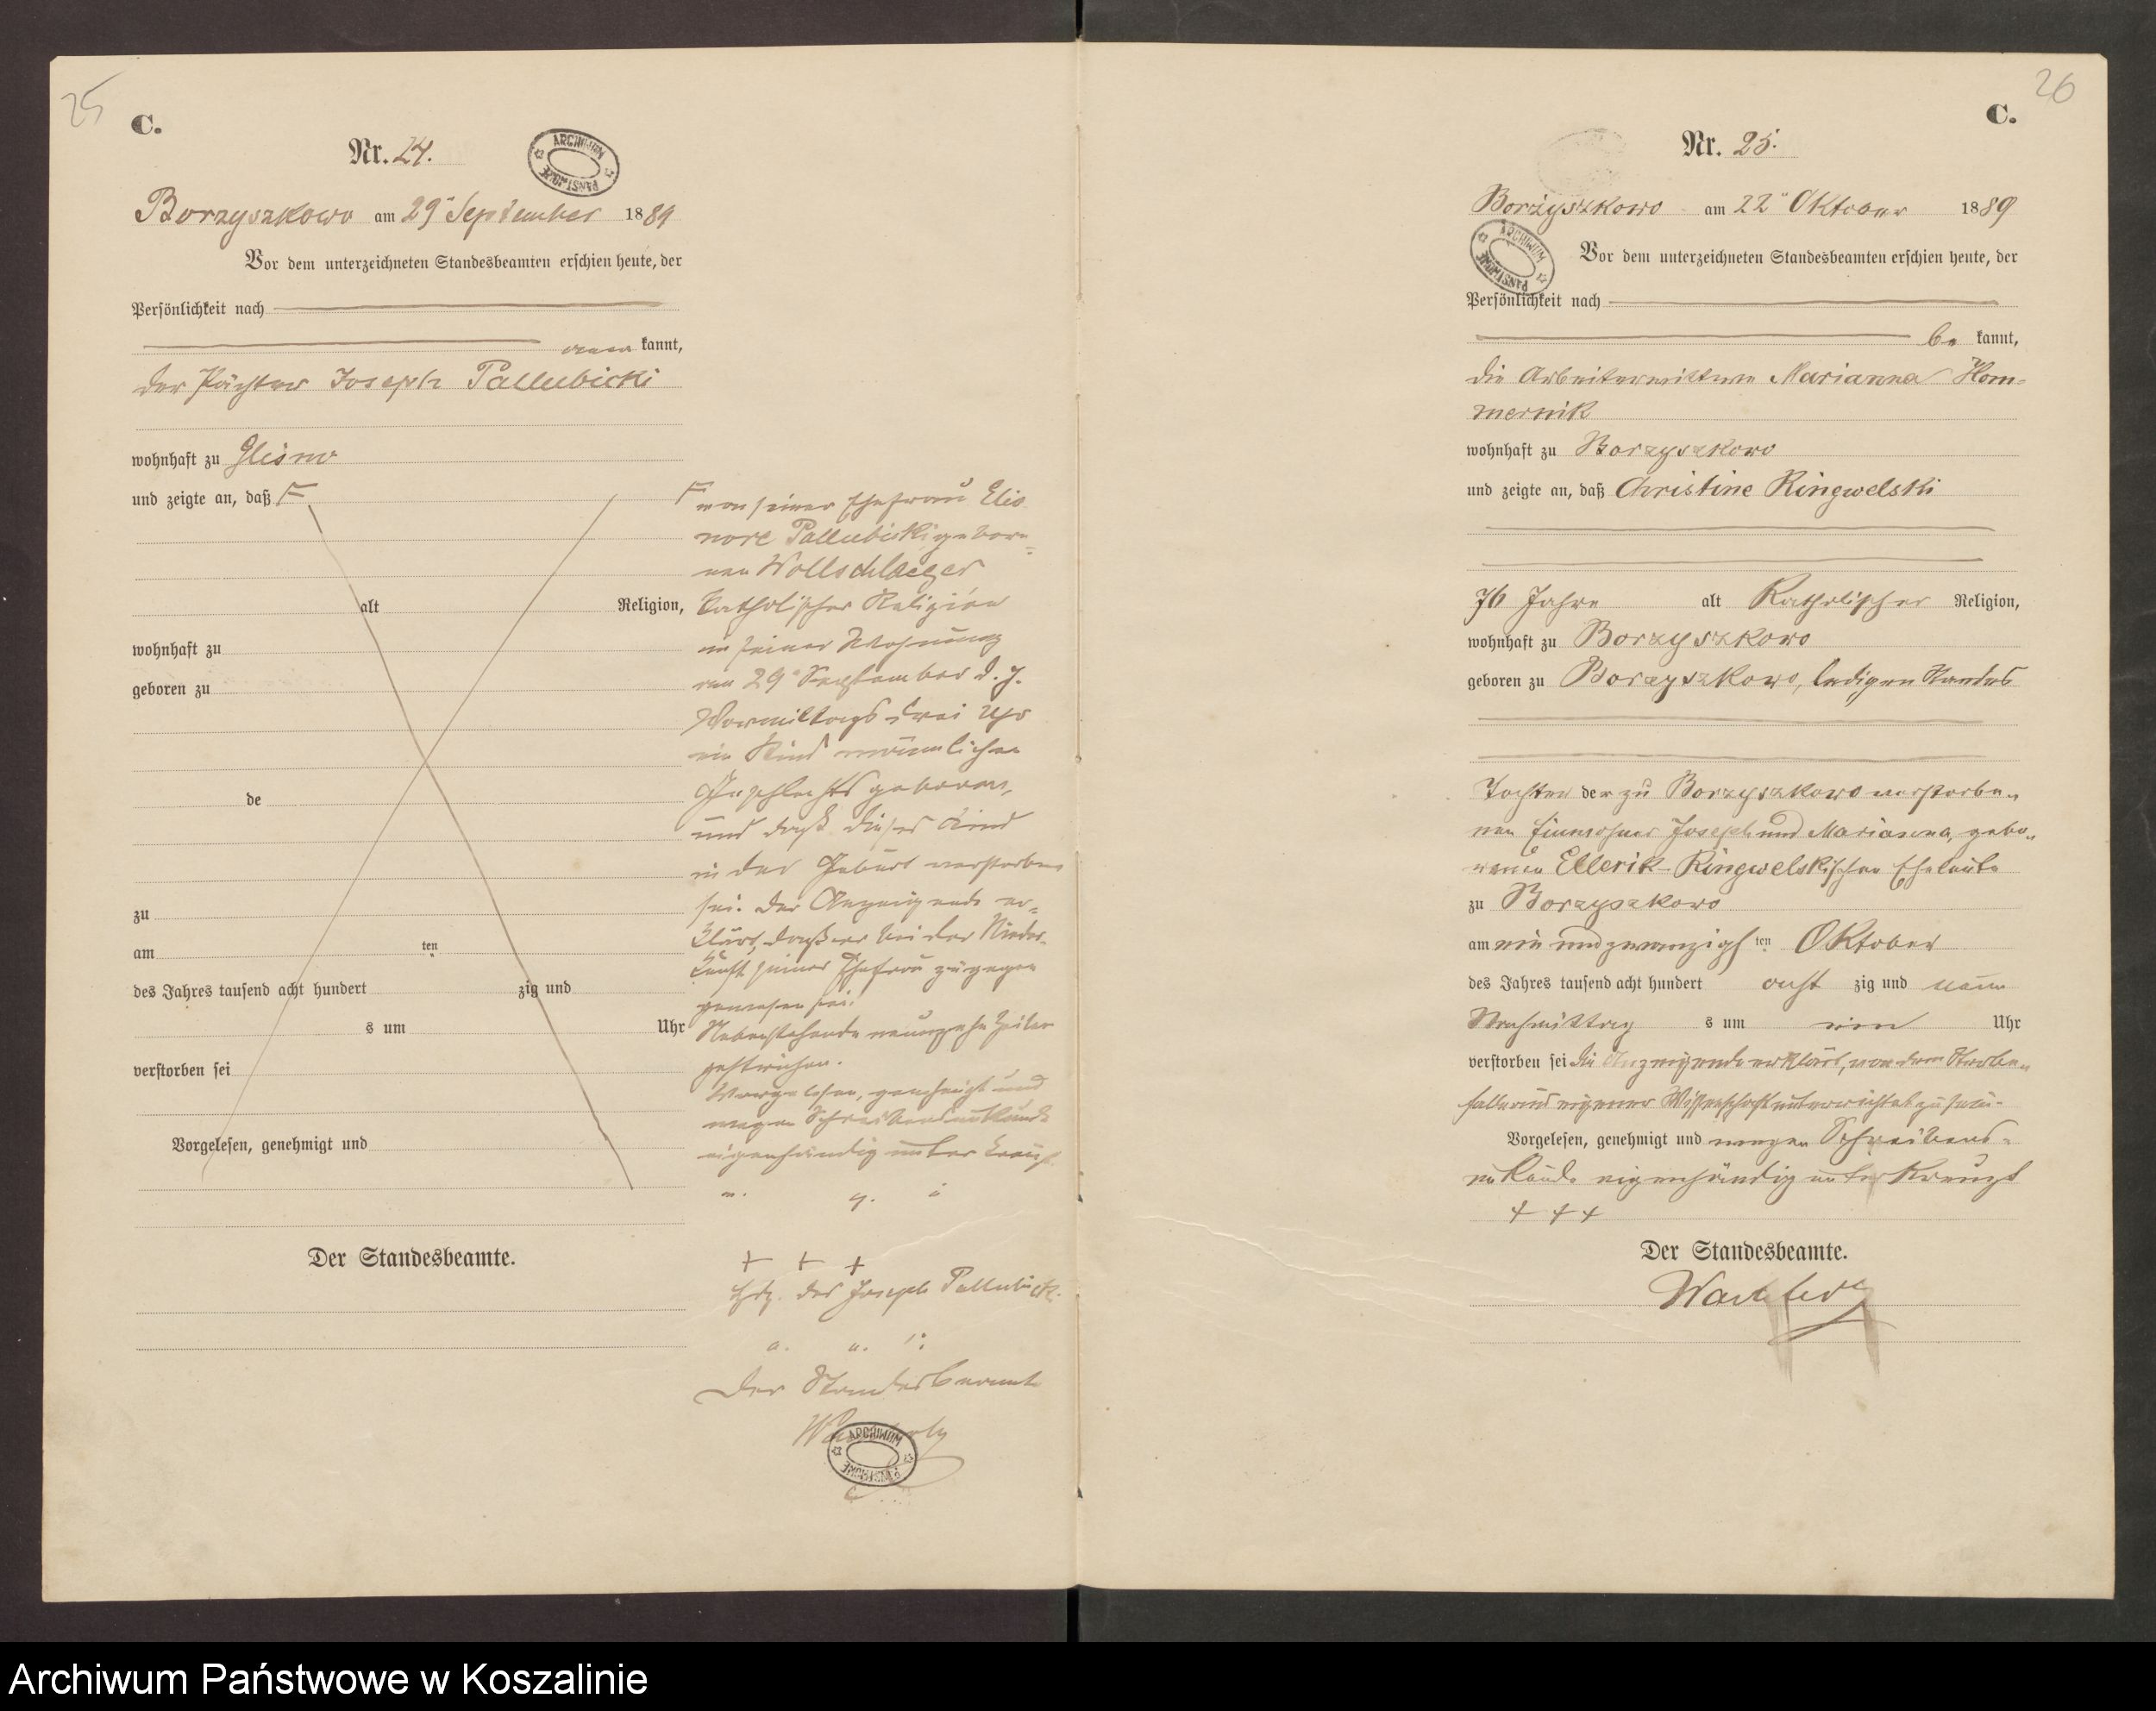 25
C.
Nr. 24.
ARCHIWUM PAŃSTWOWE
Borzyszkowo am 29ᵗ September 1889
Vor dem unterzeichneten Standesbeamten erschien heute, der
Persönlichkeit nach
kannt,
der Pächter Joseph Pallubicki
wohnhaft zu Glisno
und zeigte an, daß
alt Religion,
wohnhaft zu
geboren zu
de
zu
am ten
des Jahres tausend acht hundert zig und
s um Uhr
verstorben sei
Vorgelesen, genehmigt und
Der Standesbeamte.
von seiner Ehefrau Elio
nore Pallubicki gebore=
nen Wollschlaeger
katholischer Religion
in seiner Wohnung
am 29ᵗ September d. J.
Vormittags drei Uhr
ein Kind männlichen
Geschlechts geboren,
und daß dieses Kind
in der Geburt verstorben
sei. Der Anzeigende er=
klärt, daß er bei der Nieder=
kunft seiner Ehefrau zugegen
gewesen sei.
Nebenstehende neunzehn Zeilen
gestrichen.
Vorgelesen, genehmigt und
wegen Schreibensunkunde
eigenhändig unterkreuzt
v. g. u
+ + +
Hdz. des Joseph Pallubicki
a. u. s:
Der Standesbeamte
ARCHIWUM PAŃSTWOWE
26
C.
Nr. 25.
Borzyszkowo am 22ᵗ Oktober 1889
ARCHIWUM PAŃSTWOWE
Vor dem unterzeichneten Standesbeamten erschien heute, der
Persönlichkeit nach
be kannt,
die Arbeiterwittwe Marianna Hom=
mernik
wohnhaft zu Borzyszkowo
und zeigte an, daß Christine Ringwelski
76 Jahre alt Katholischer Religion,
wohnhaft zu Borzyszkowo
geboren zu Borzyszkowo, ledigen Standes
Tochter der zu Borzyszkowo verstorbe=
nen Einwohner Joseph und Marianna, gebo=
renen Ellerik-Ringwelskischen Eheleute
zu Borzyszkowo
am ein und zwanzigsten Oktober
des Jahres tausend acht hundert acht zig und neun
Nachmittag s um ein Uhr
verstorben sei die Anzeigende erklärt, von dem Sterbe=
falle aus eigener Wissenschaft unterrichtet zu sein.
Vorgelesen, genehmigt und wegen Schreibens=
unkunde eigenhändig unterkreuzt
+ + +
Der Standesbeamte.
Archiwum Państwowe w Koszalinie